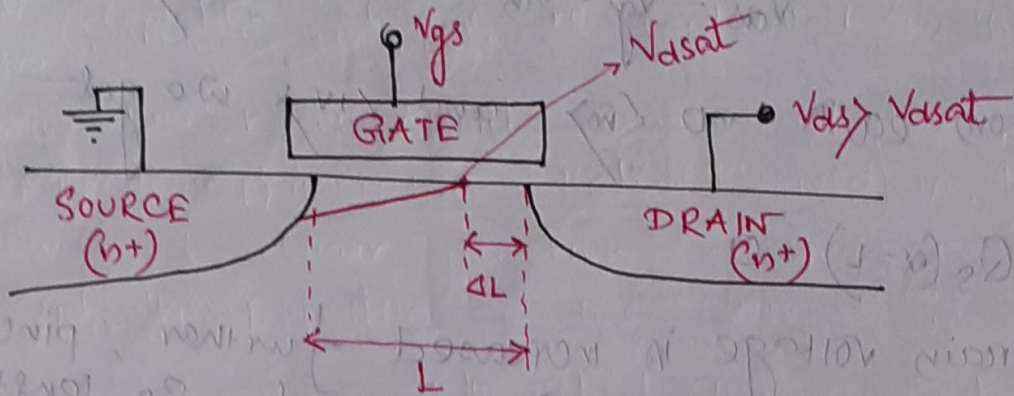 Vgs
Vdsat
GATE
Vds> Vdsat
SOURCE
(n+)
DRAIN
(n+)
ΔL
L